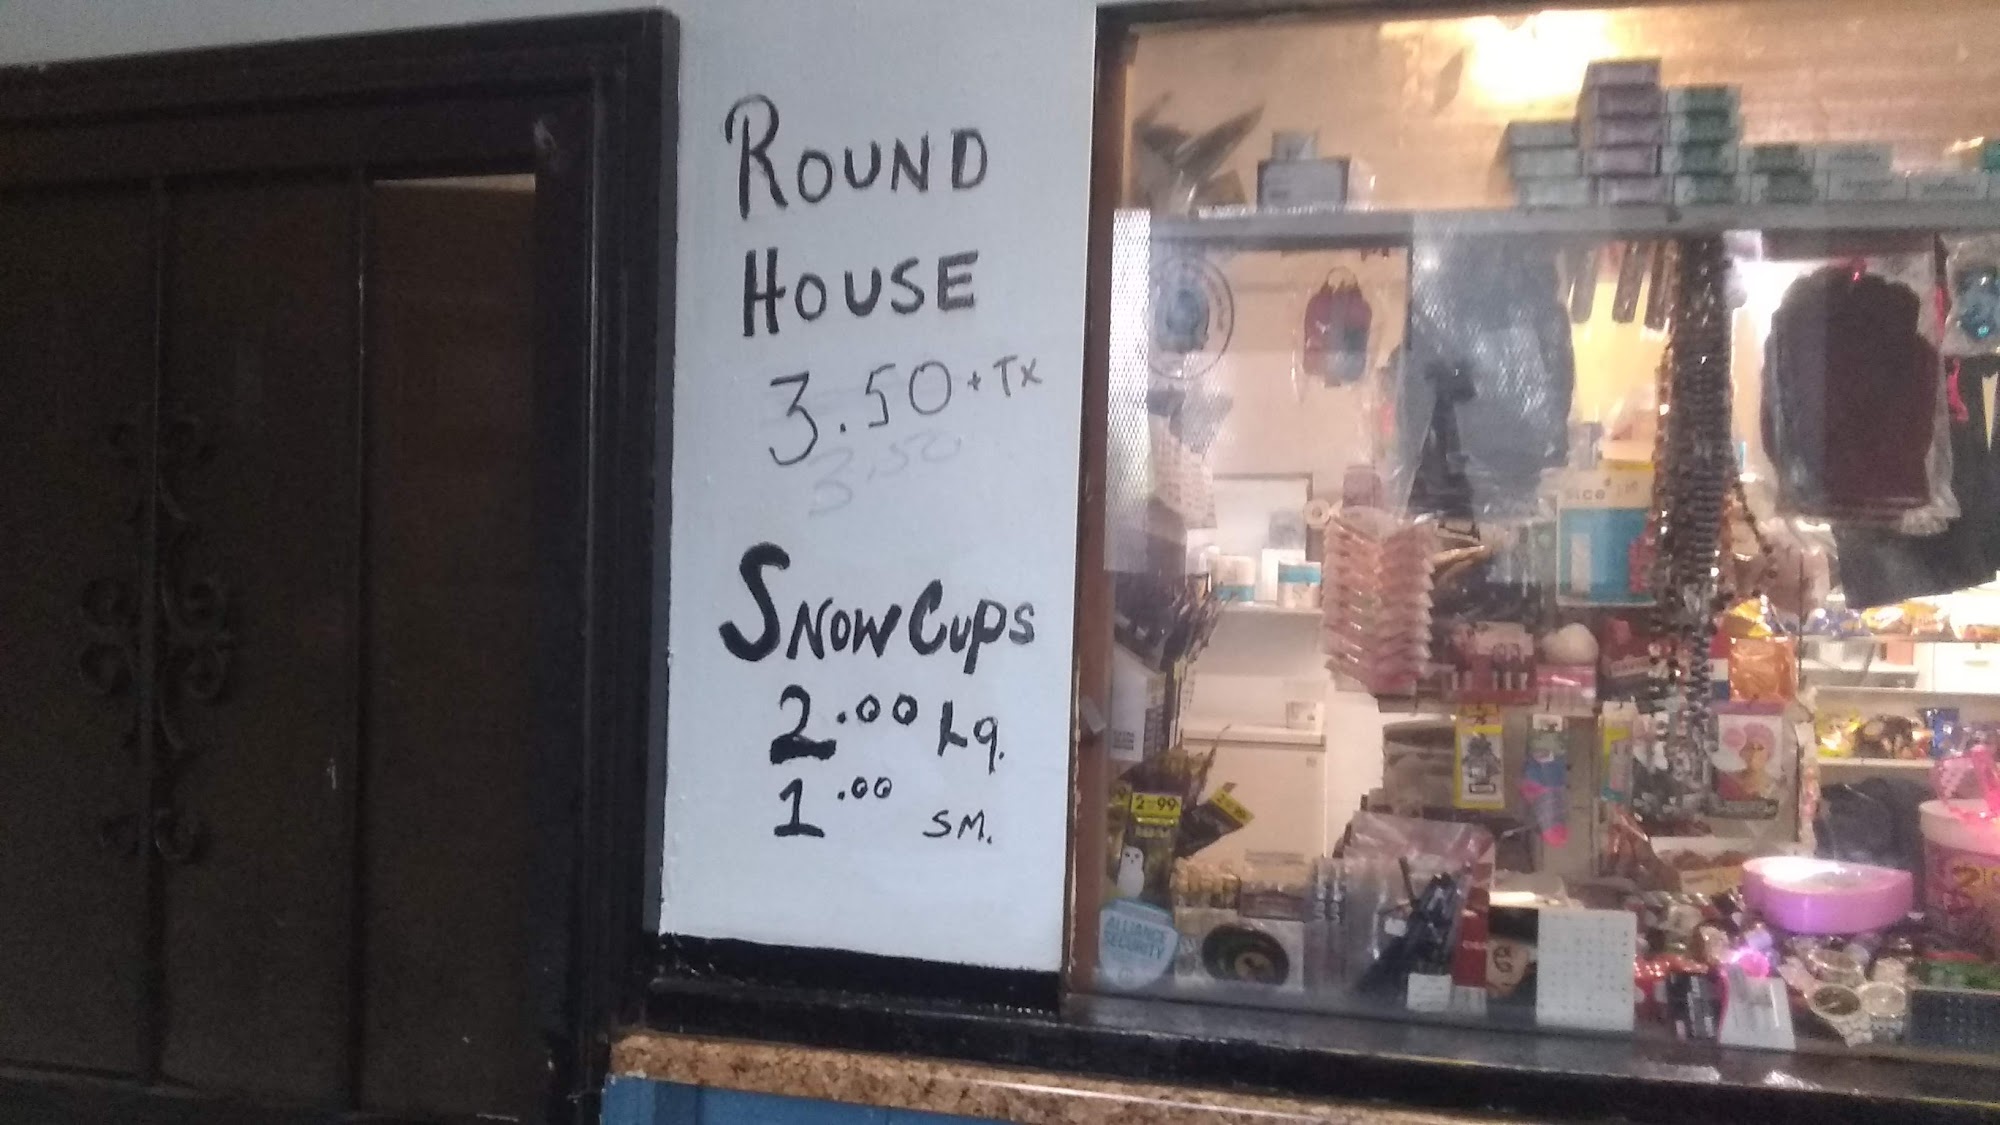 ROUND
HOUSE
3.50 + TX
3.50
SNOW CUPS
2.00 Lg.
1.00 SM.
2 99
ALLIANCE
SECURITY